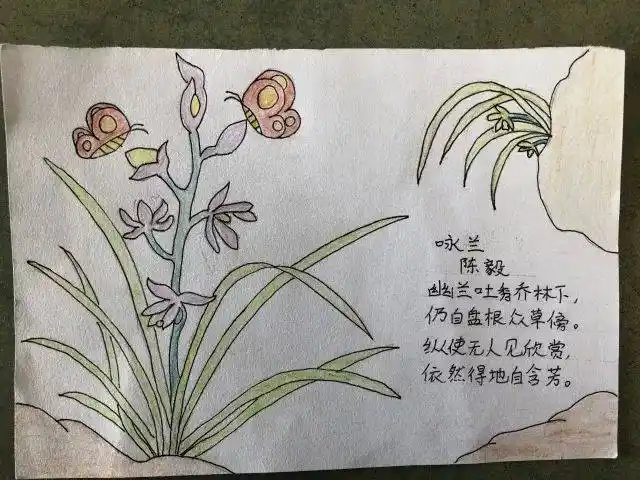 咏兰
陈毅
幽兰吐秀乔林下，
仍自盘根众草傍。
纵使无人见欣赏，
依然得地自含芳。